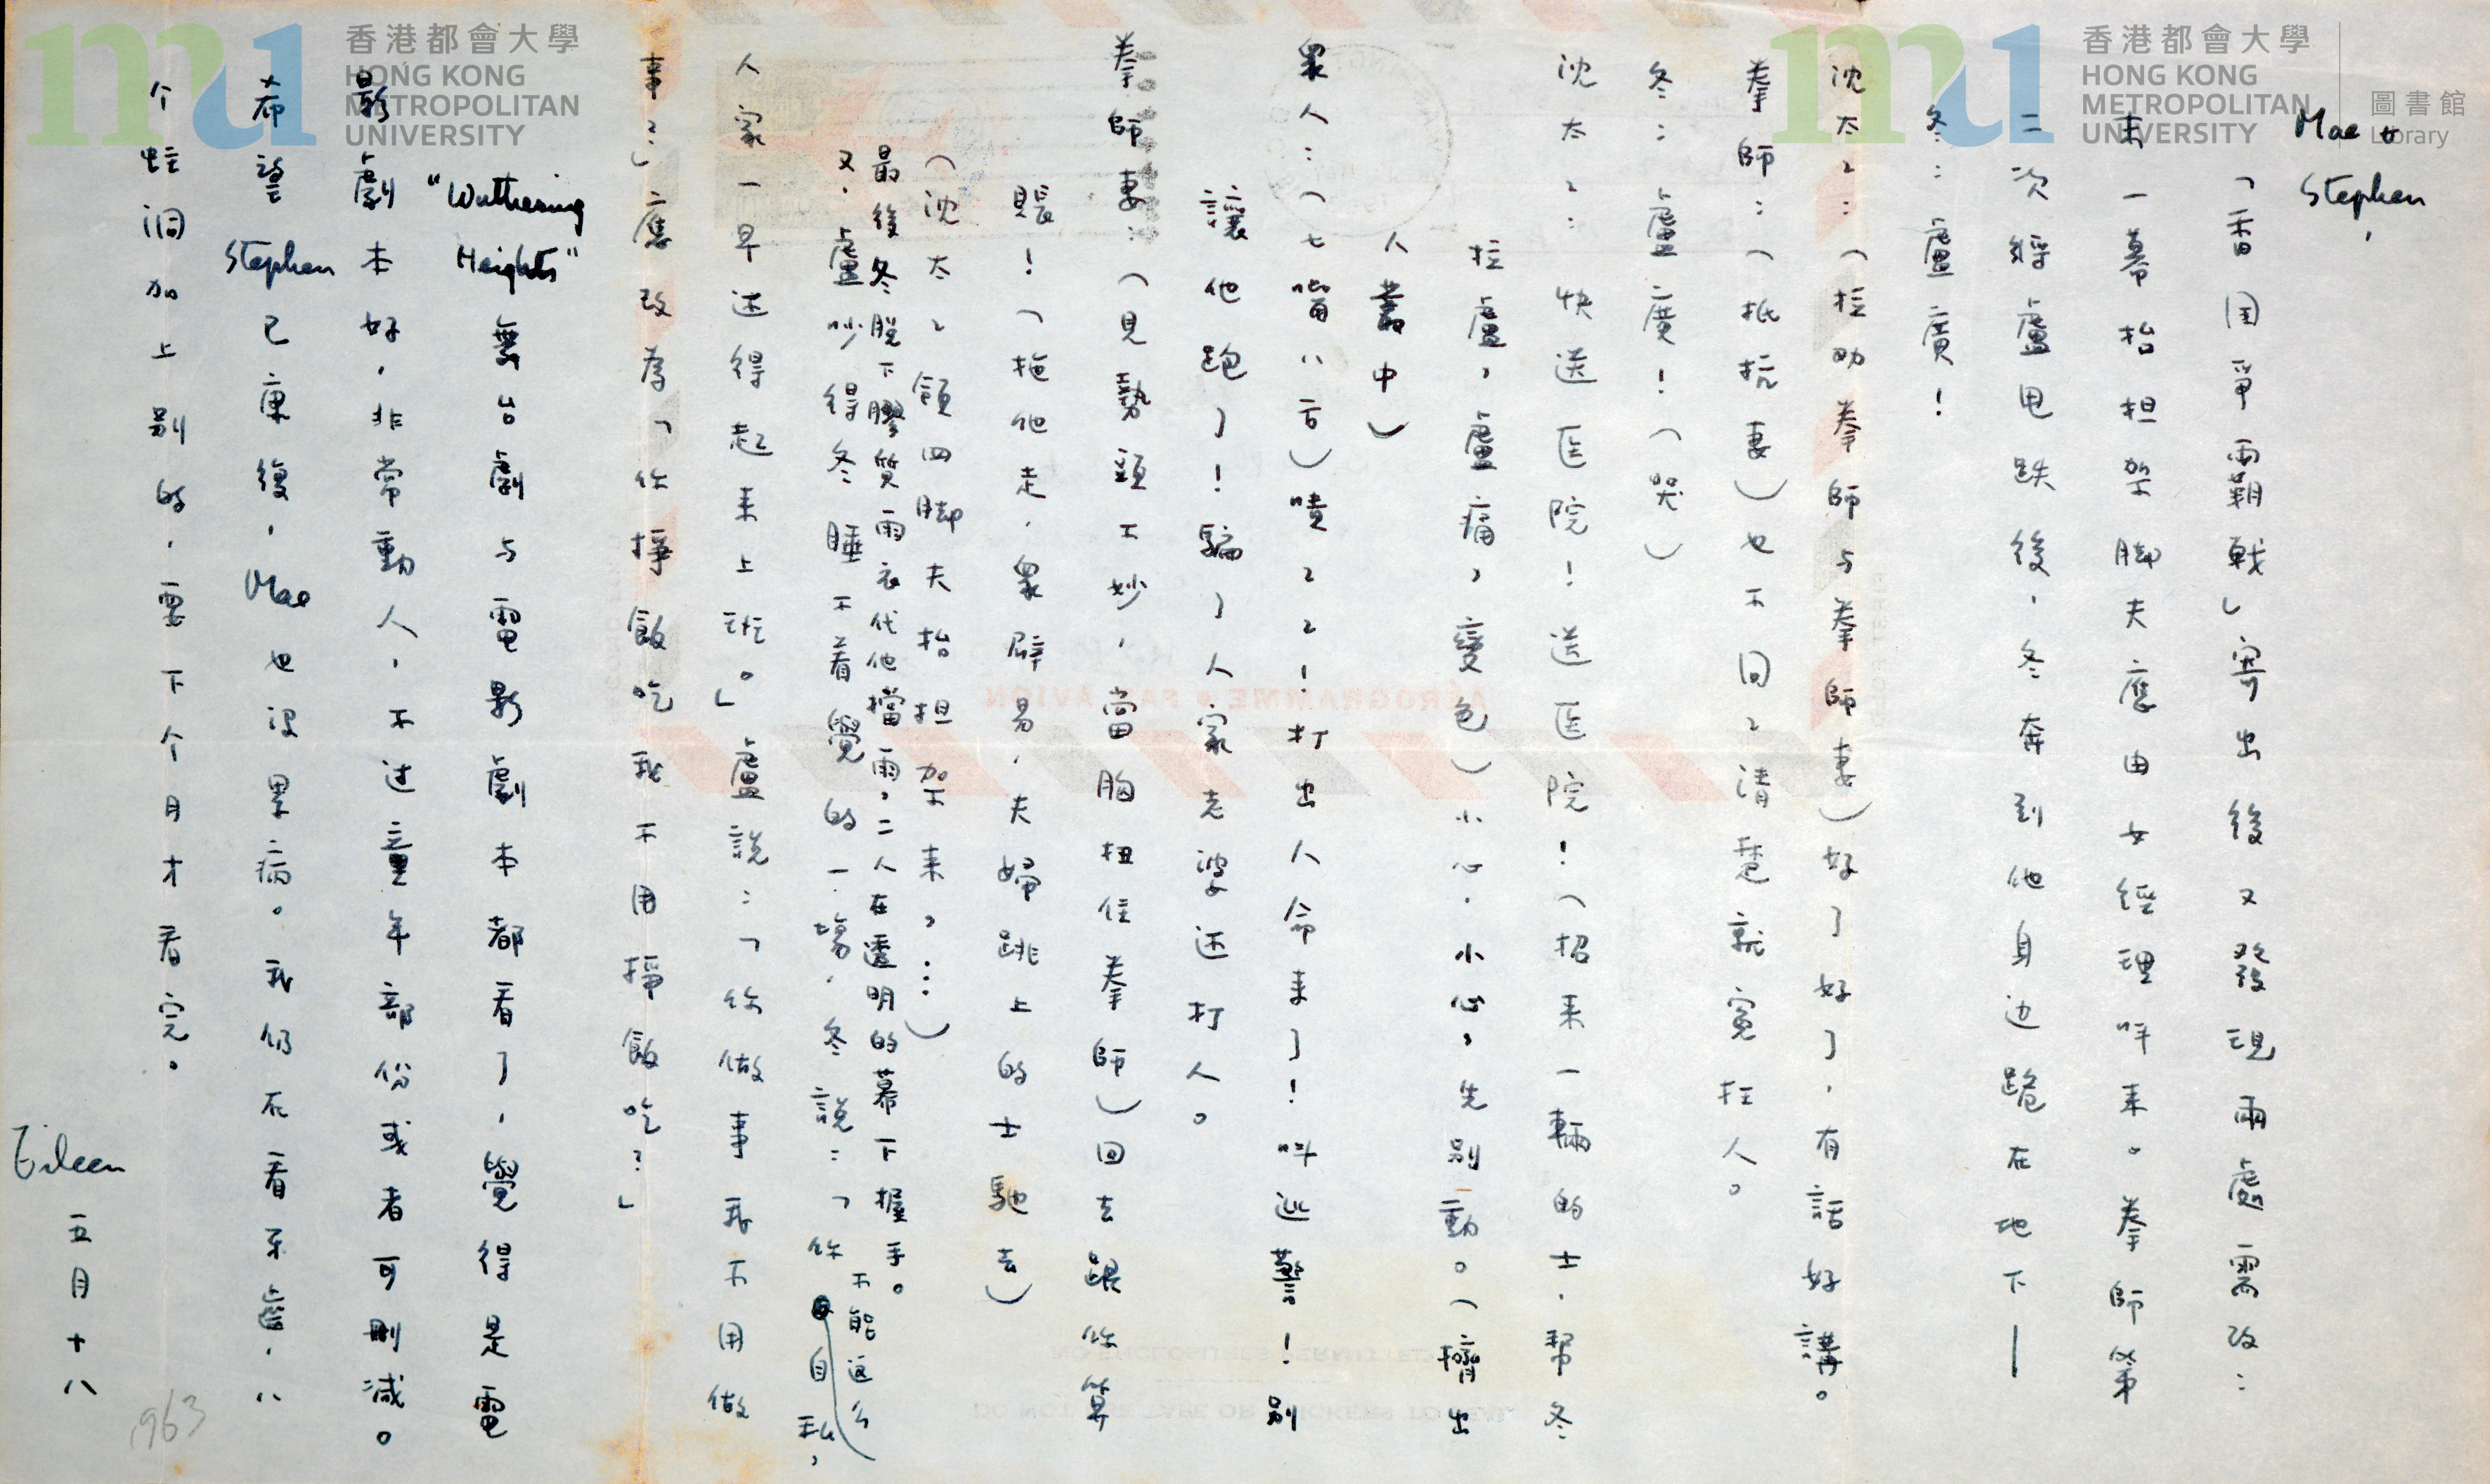 Mae &
Stephen,
「香閨爭霸戰」寄出後又發現兩處需改：
末一幕抬担架脚夫應由女經理呼來。拳師第
二次將盧甩跌後，冬奔到他身边跪在地下—
冬：盧廣！
沈太〻：（拉劝拳師与拳師妻）好了好了，有話好講。
拳師：（抵抗妻）也不问〻清楚就寃枉人。
冬：盧廣！（哭）
沈太〻：快送医院！送医院！（招来一輛的士，帮冬
拉盧，盧痛，变色）小心，小心，先别動。（擠出
人叢中）
眾人：（七嘴八舌）嘖〻〻！打出人命来了！叫巡警！别
讓他跑了！騙了人家老婆还打人。
拳師妻：（見勢頭不妙，當胸扭住拳師）回去跟你算
賬！（拖他走，眾辟易，夫婦跳上的士馳去）
（沈太〻領四脚夫抬担架来，…）
最後冬脫下膠質雨衣代他擋雨，二人在透明的幕下握手。
又，盧吵得冬睡不着覺的一場，冬說：「你不能这么自私，
人家一早还得起来上班。」盧說：「你做事我不用做
事？」應改為「你掙飯吃我不用掙飯吃？」
"Wuthering Heights"舞台劇与電影劇本都看了，覺得是電
影劇本好，非常動人，不过童年部份或者可刪減。
希望Stephen已康復，Mae也没累病。我仍在看牙齒，八
个蛀洞加上别的，要下个月才看完。
Eileen
五月十八
1963
香港都會大學
HONG KONG
METROPOLITAN
UNIVERSITY
香港都會大學
HONG KONG
METROPOLITAN
UNIVERSITY
圖書館
Library
AÉROGRAMME • PAR AVION